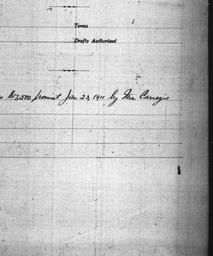 Terms
Drafts Authorized
$7,500 promised Jan 23, 1911, by Mr. Carnegie